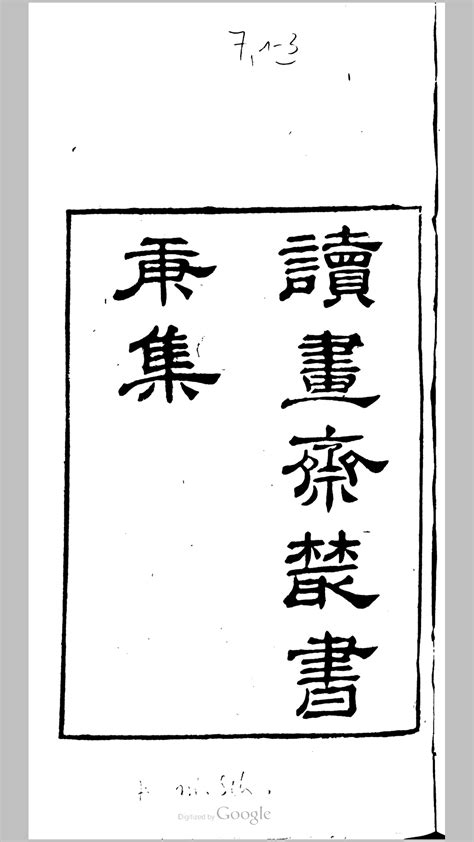 7,1-3
讀畫齋叢書
庚集
Digitized by Google